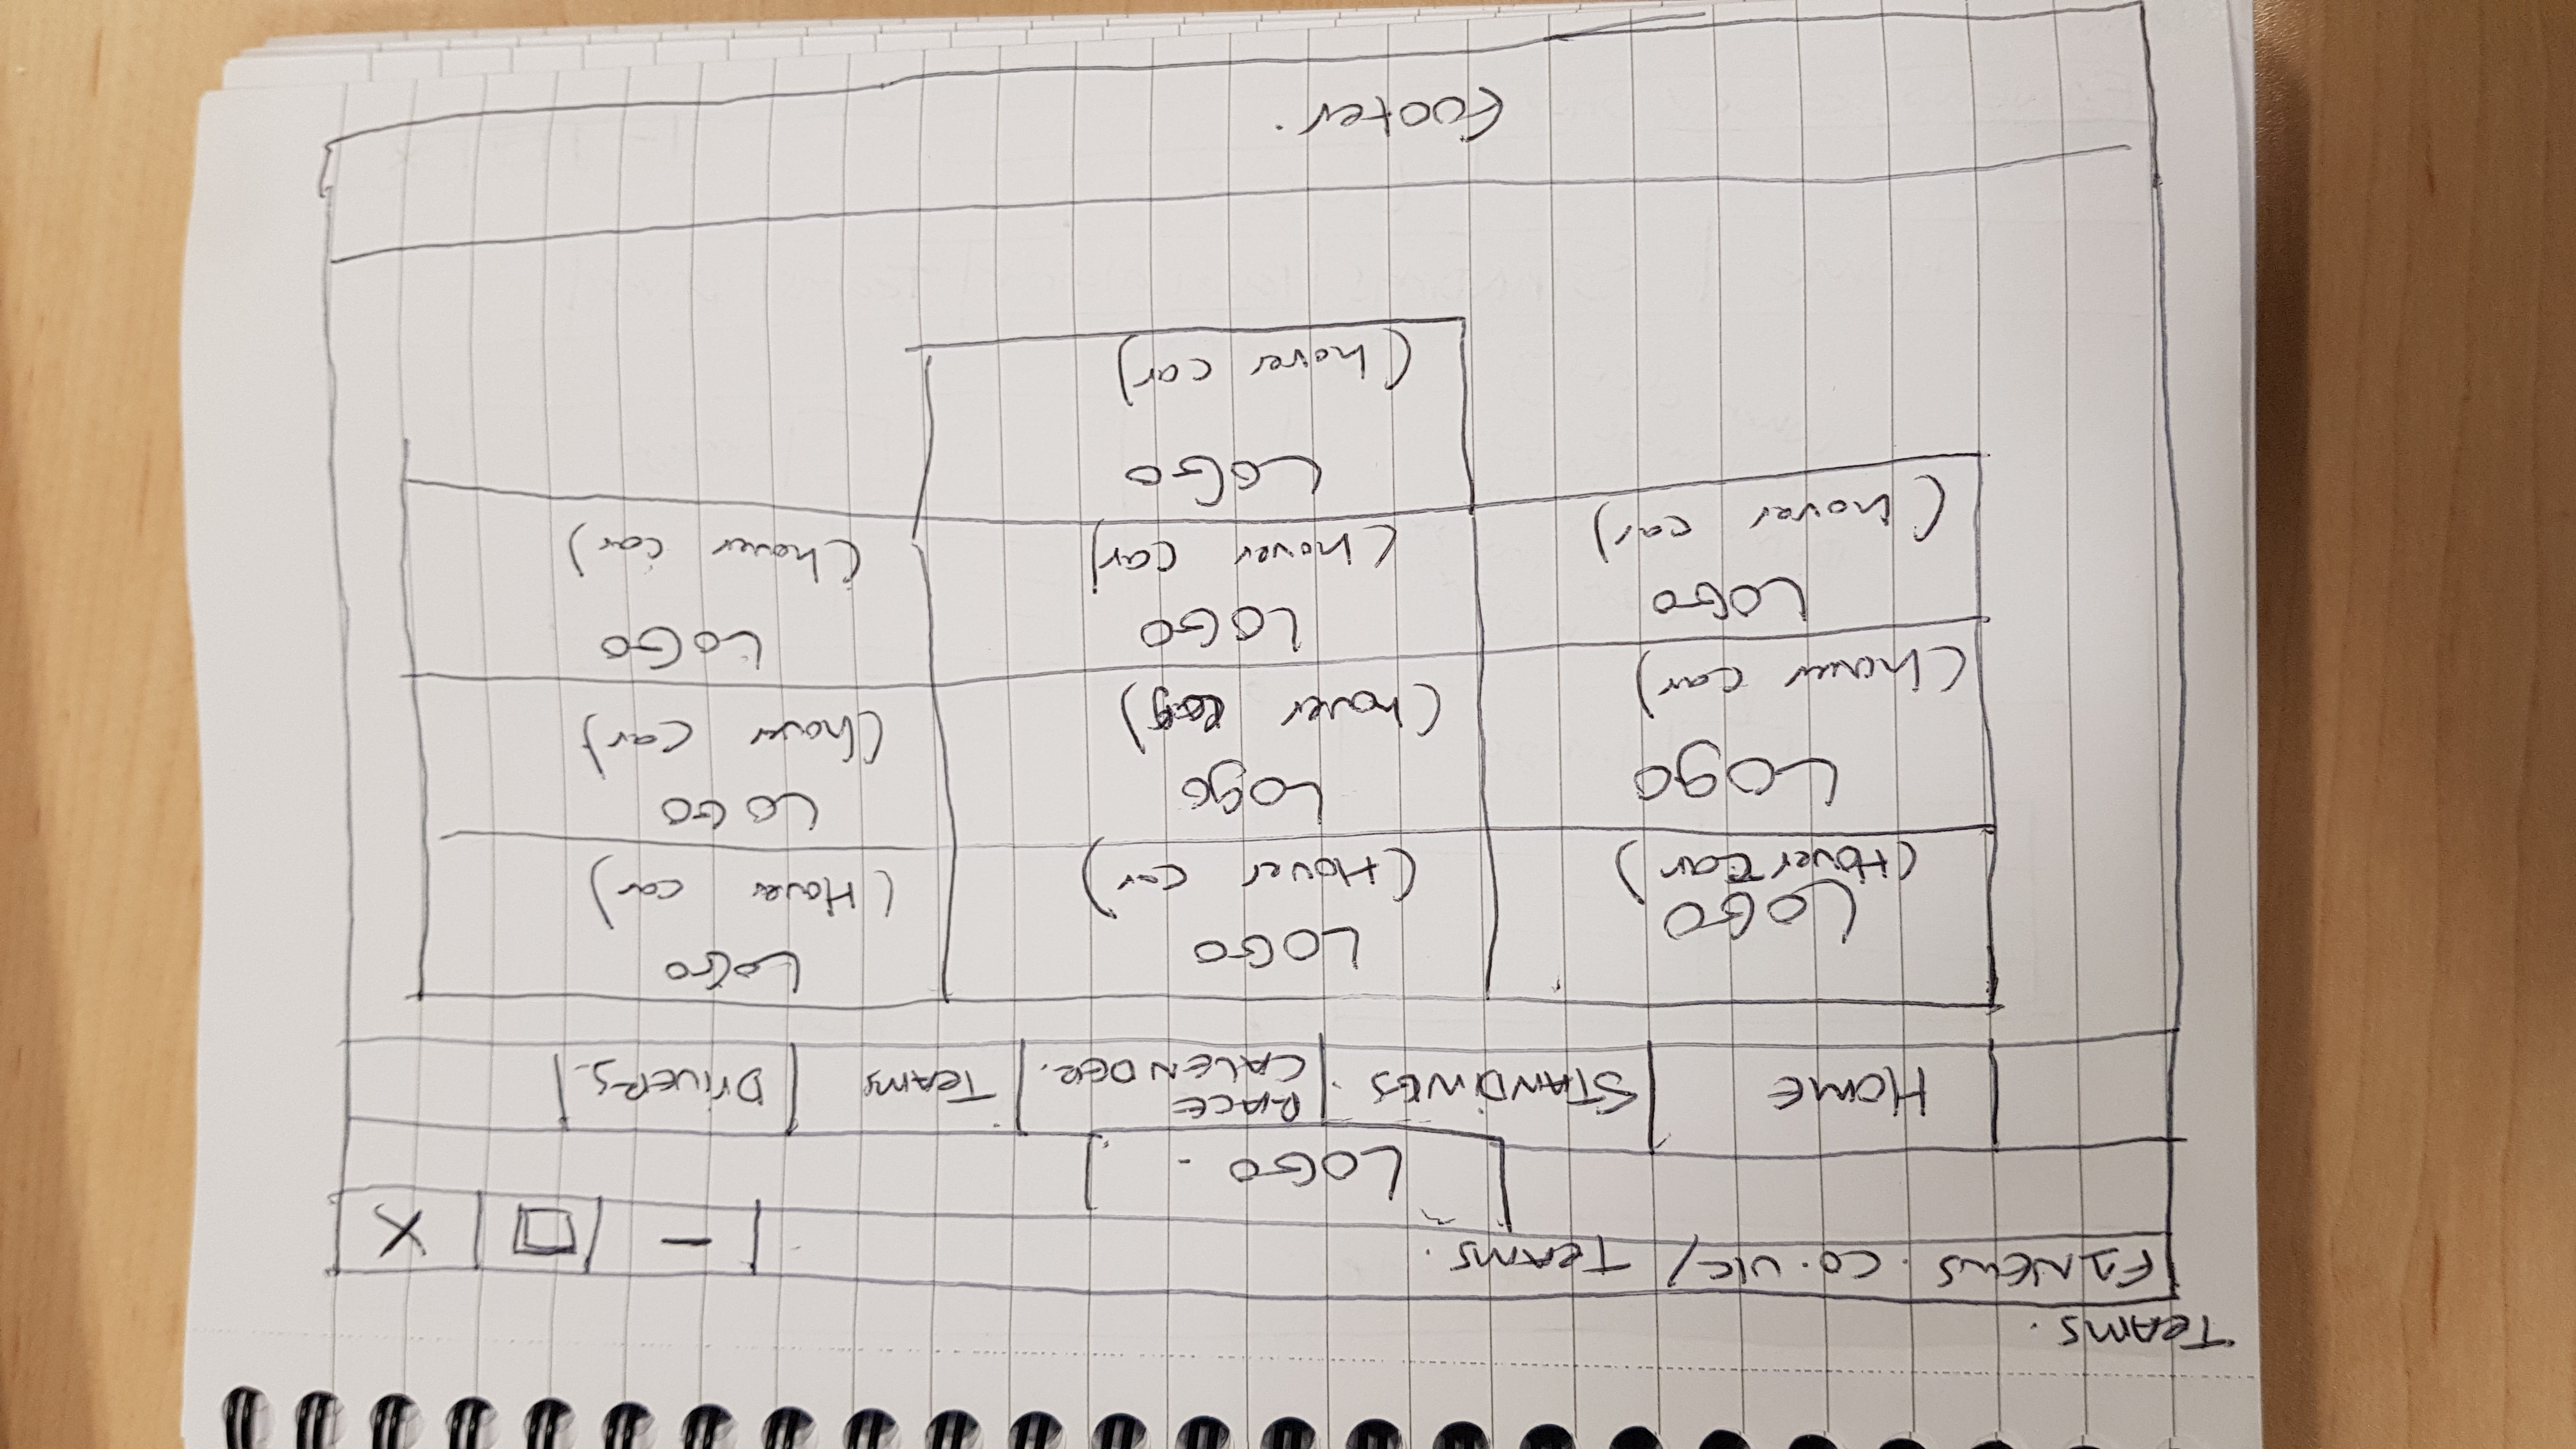 TEAMS.
F1NEWS.CO.UK/ TEAMS.
LOGO.
HOME
STANDINGS.
RACE
CALENDER.
TEAMS
DRIVERS.
LOGO
(Hover car)
LOGO
(Hover car)
LOGO
(Hover car)
Logo
(hover car)
Logo
(hover
LOGO
(hover car)
LOGO
(hover car)
LOGO
(hover car)
LOGO
(hover car)
LOGO
(hover car)
footer.